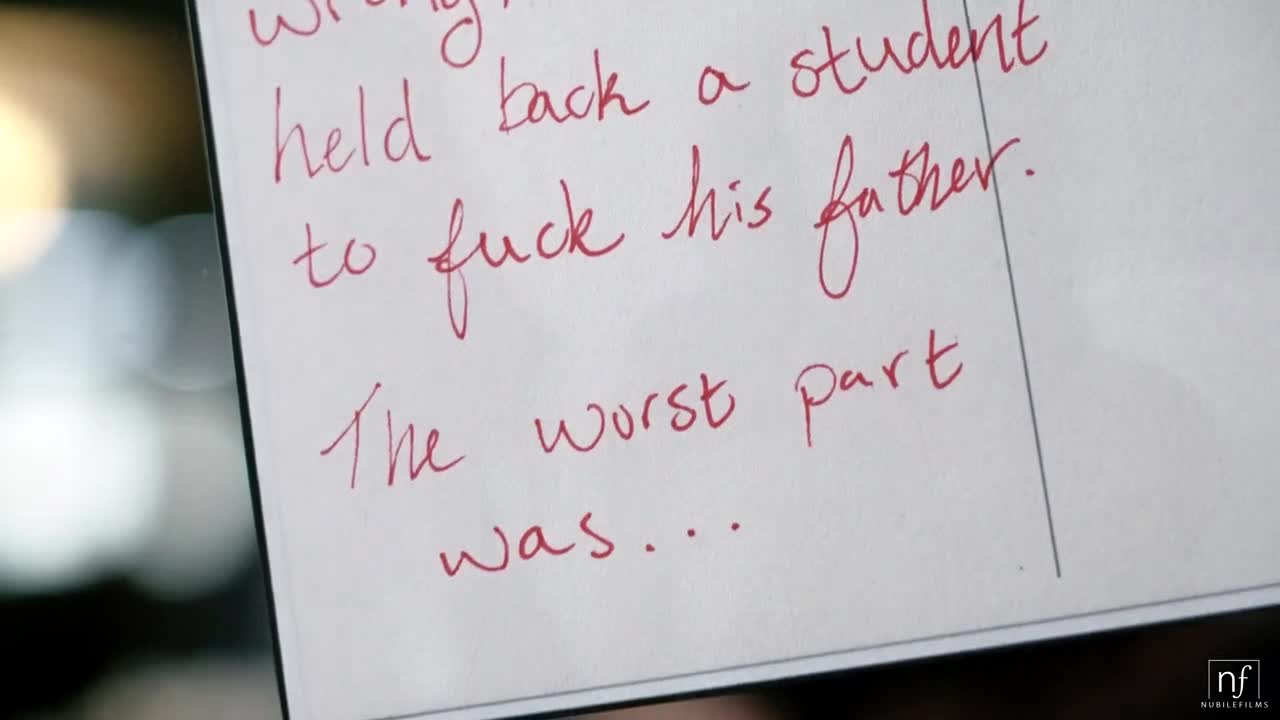 wrong
held back a student
to fuck his father.
The worst part
was...
nf
NUBILEFILMS